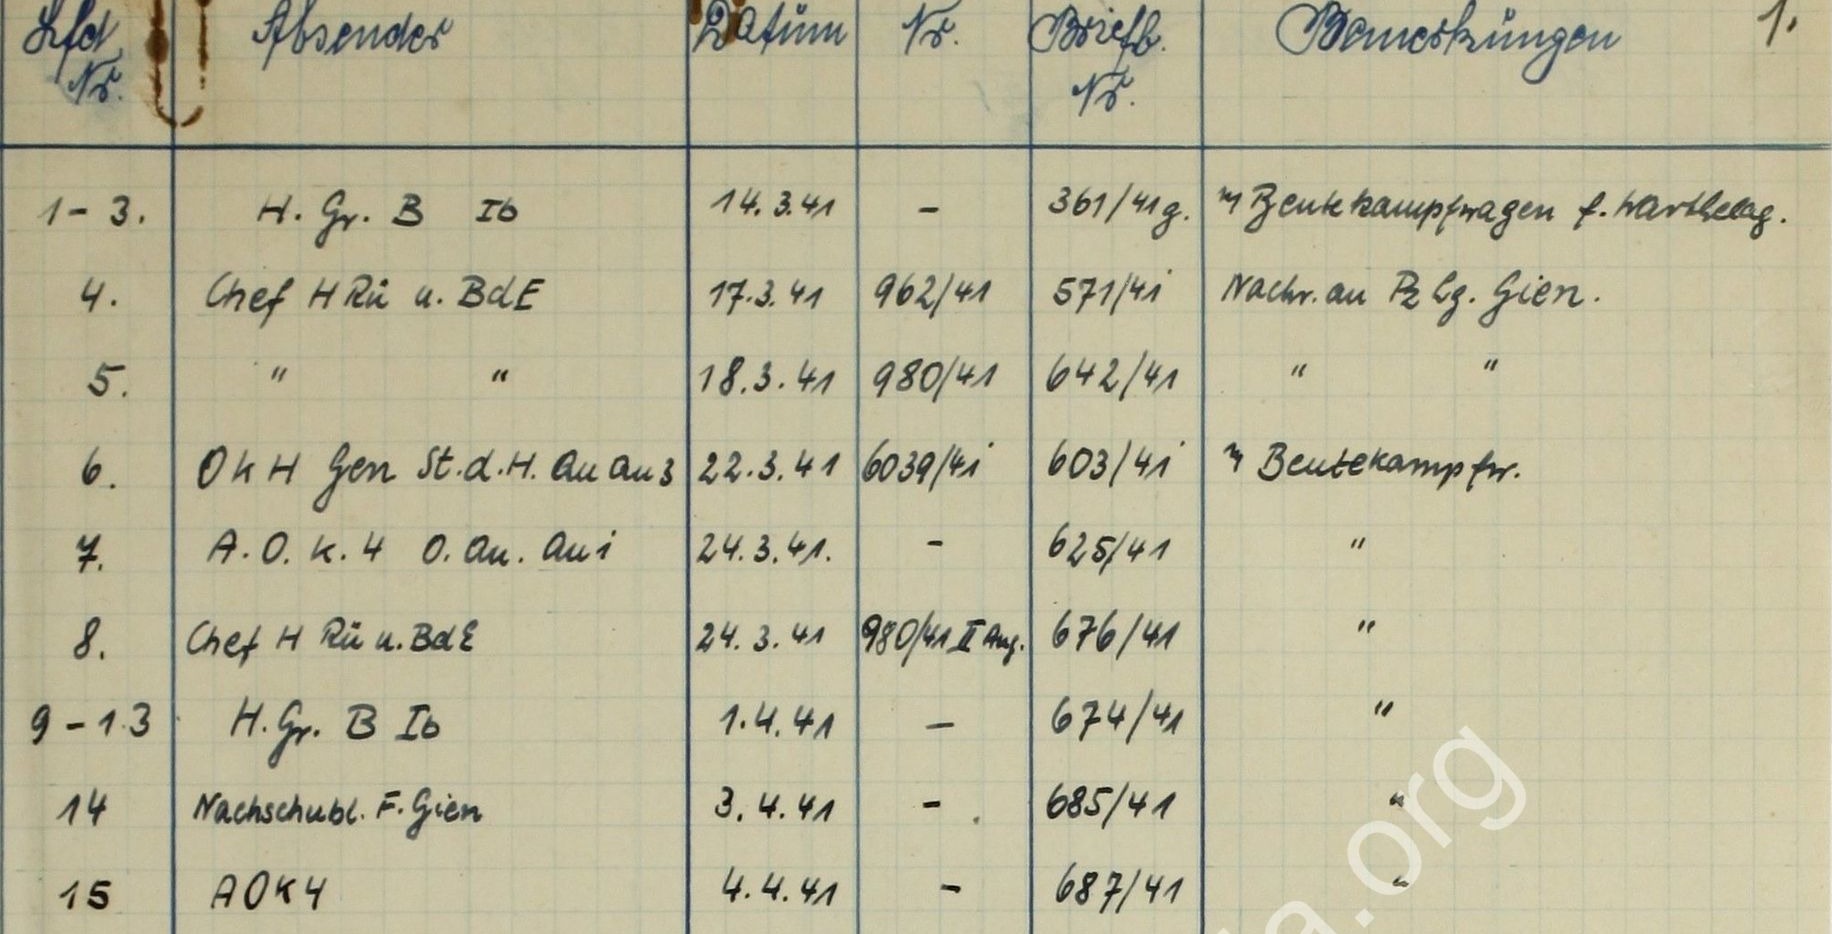 Lfd. Nr. Absender Datum Nr. Briefb. Nr. Bemerkungen 1.
1-3. H. Gr. B Ib 14.3.41 - 361/41 g. Beutekampfwagen f. Warthelag.
4. Chef H Rü u. BdE 17.3.41 962/41 571/41 Nachr. an Pz Lg. Gien.
5. " " 18.3.41 980/41 642/41 " "
6. OKH Gen St.d.H. Au Au 3 22.3.41 6039/41 603/41 Beutekampfw.
7. A.O.K. 4 O.Qu. Qu 1 24.3.41. - 625/41 "
8. Chef H Rü u. BdE 24.3.41 980/41 II Ang. 676/41 "
9-13 H.Gr. B Ib 1.4.41 - 674/41 "
14 Nachschubl. F. Gien 3.4.41 - 685/41 "
15 AOK4 4.4.41 - 687/41 "
a.org